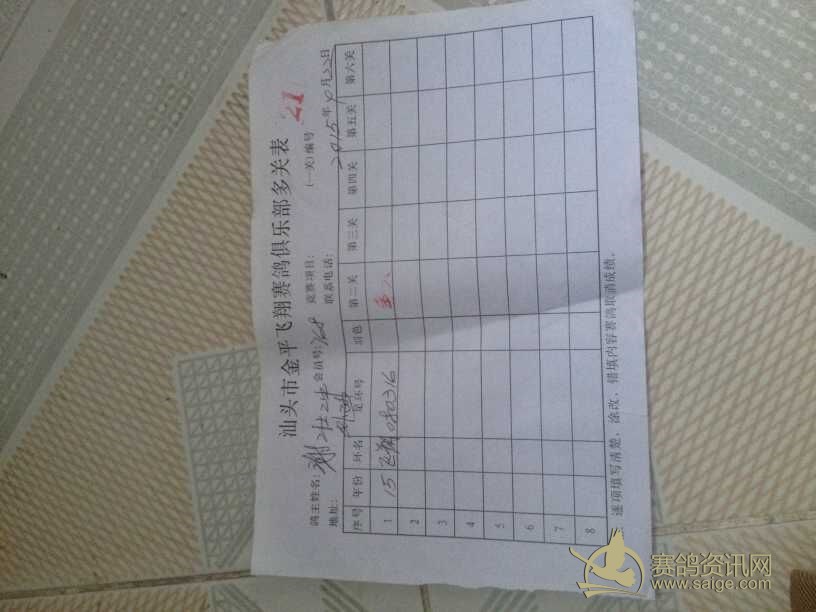 汕头市金平飞翔赛鸽俱乐部多关表
(一关)编号 21
鸽主姓名: 会员号:768 竞赛项目: 2015年 月22日
地址: 联系电话:
序号 年份 环名 足环号 羽色 第二关 第三关 第四关 第五关 第六关
1 15 飞翔 080316
2
3
4
5
6
7
8
逐项填写清楚，涂改、错填内容赛鸽取消成绩。
赛鸽资讯网
www.saige.com